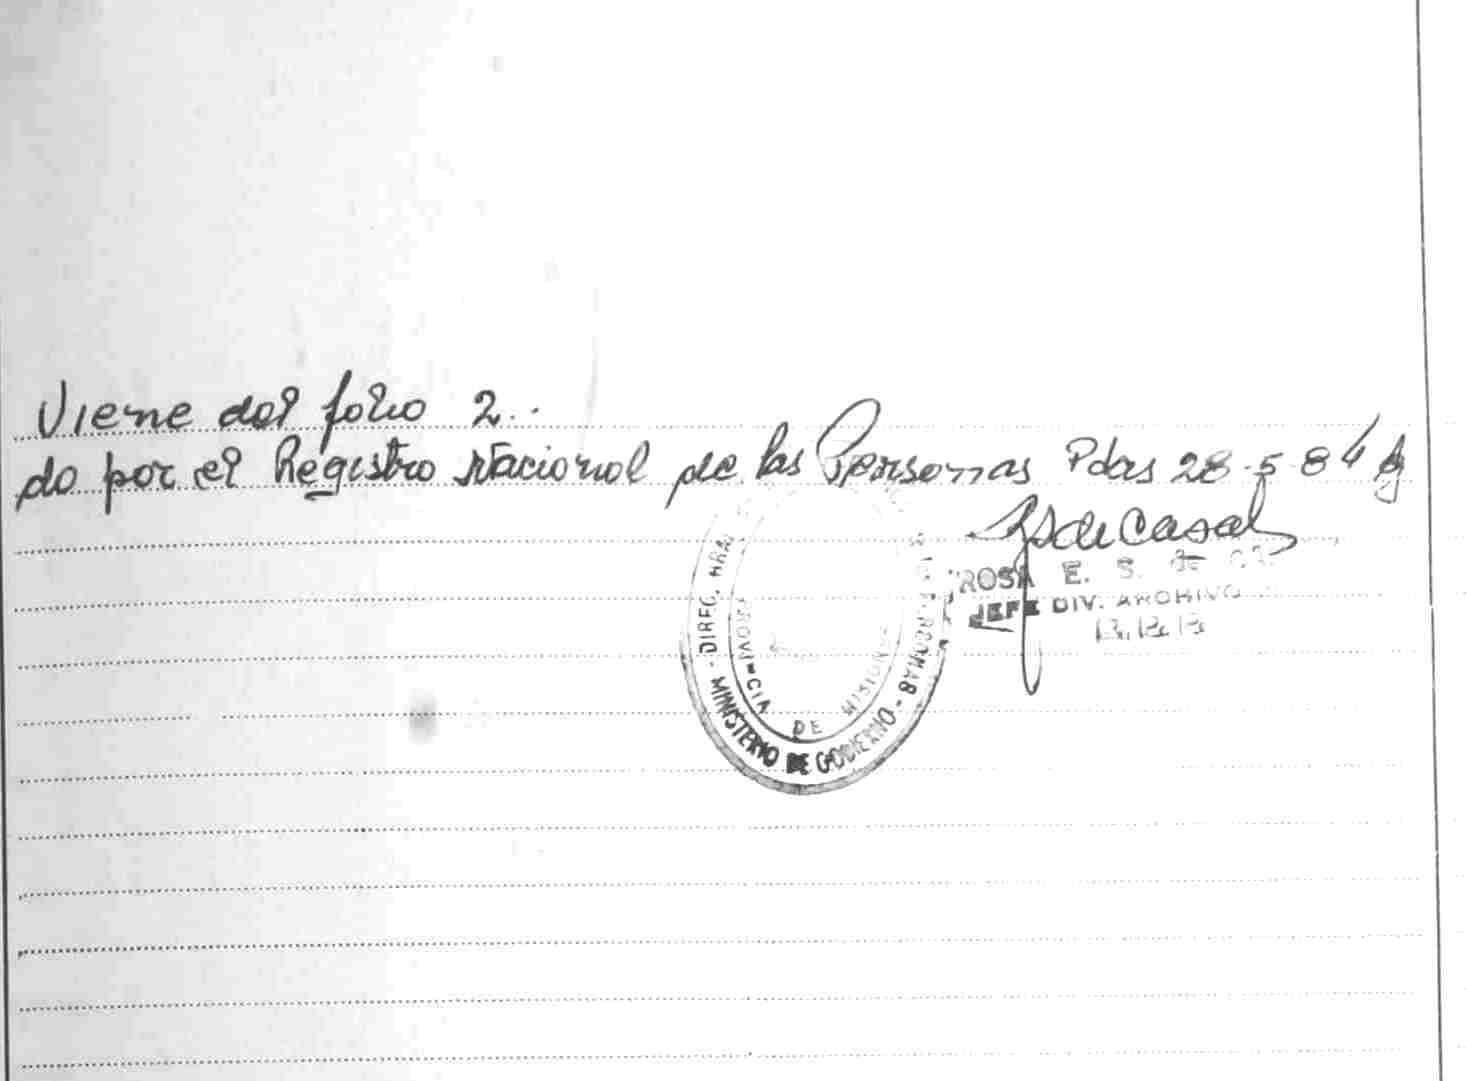 Viene del folio 2..
do por el Registro Nacional de las Personas Pdas 28-5-84
RS de Casal
ROSA E. S. de
JEFE DIV. ARCHIVO
MINISTERIO DE GOBIERNO
PROVINCIA DE MISIONES